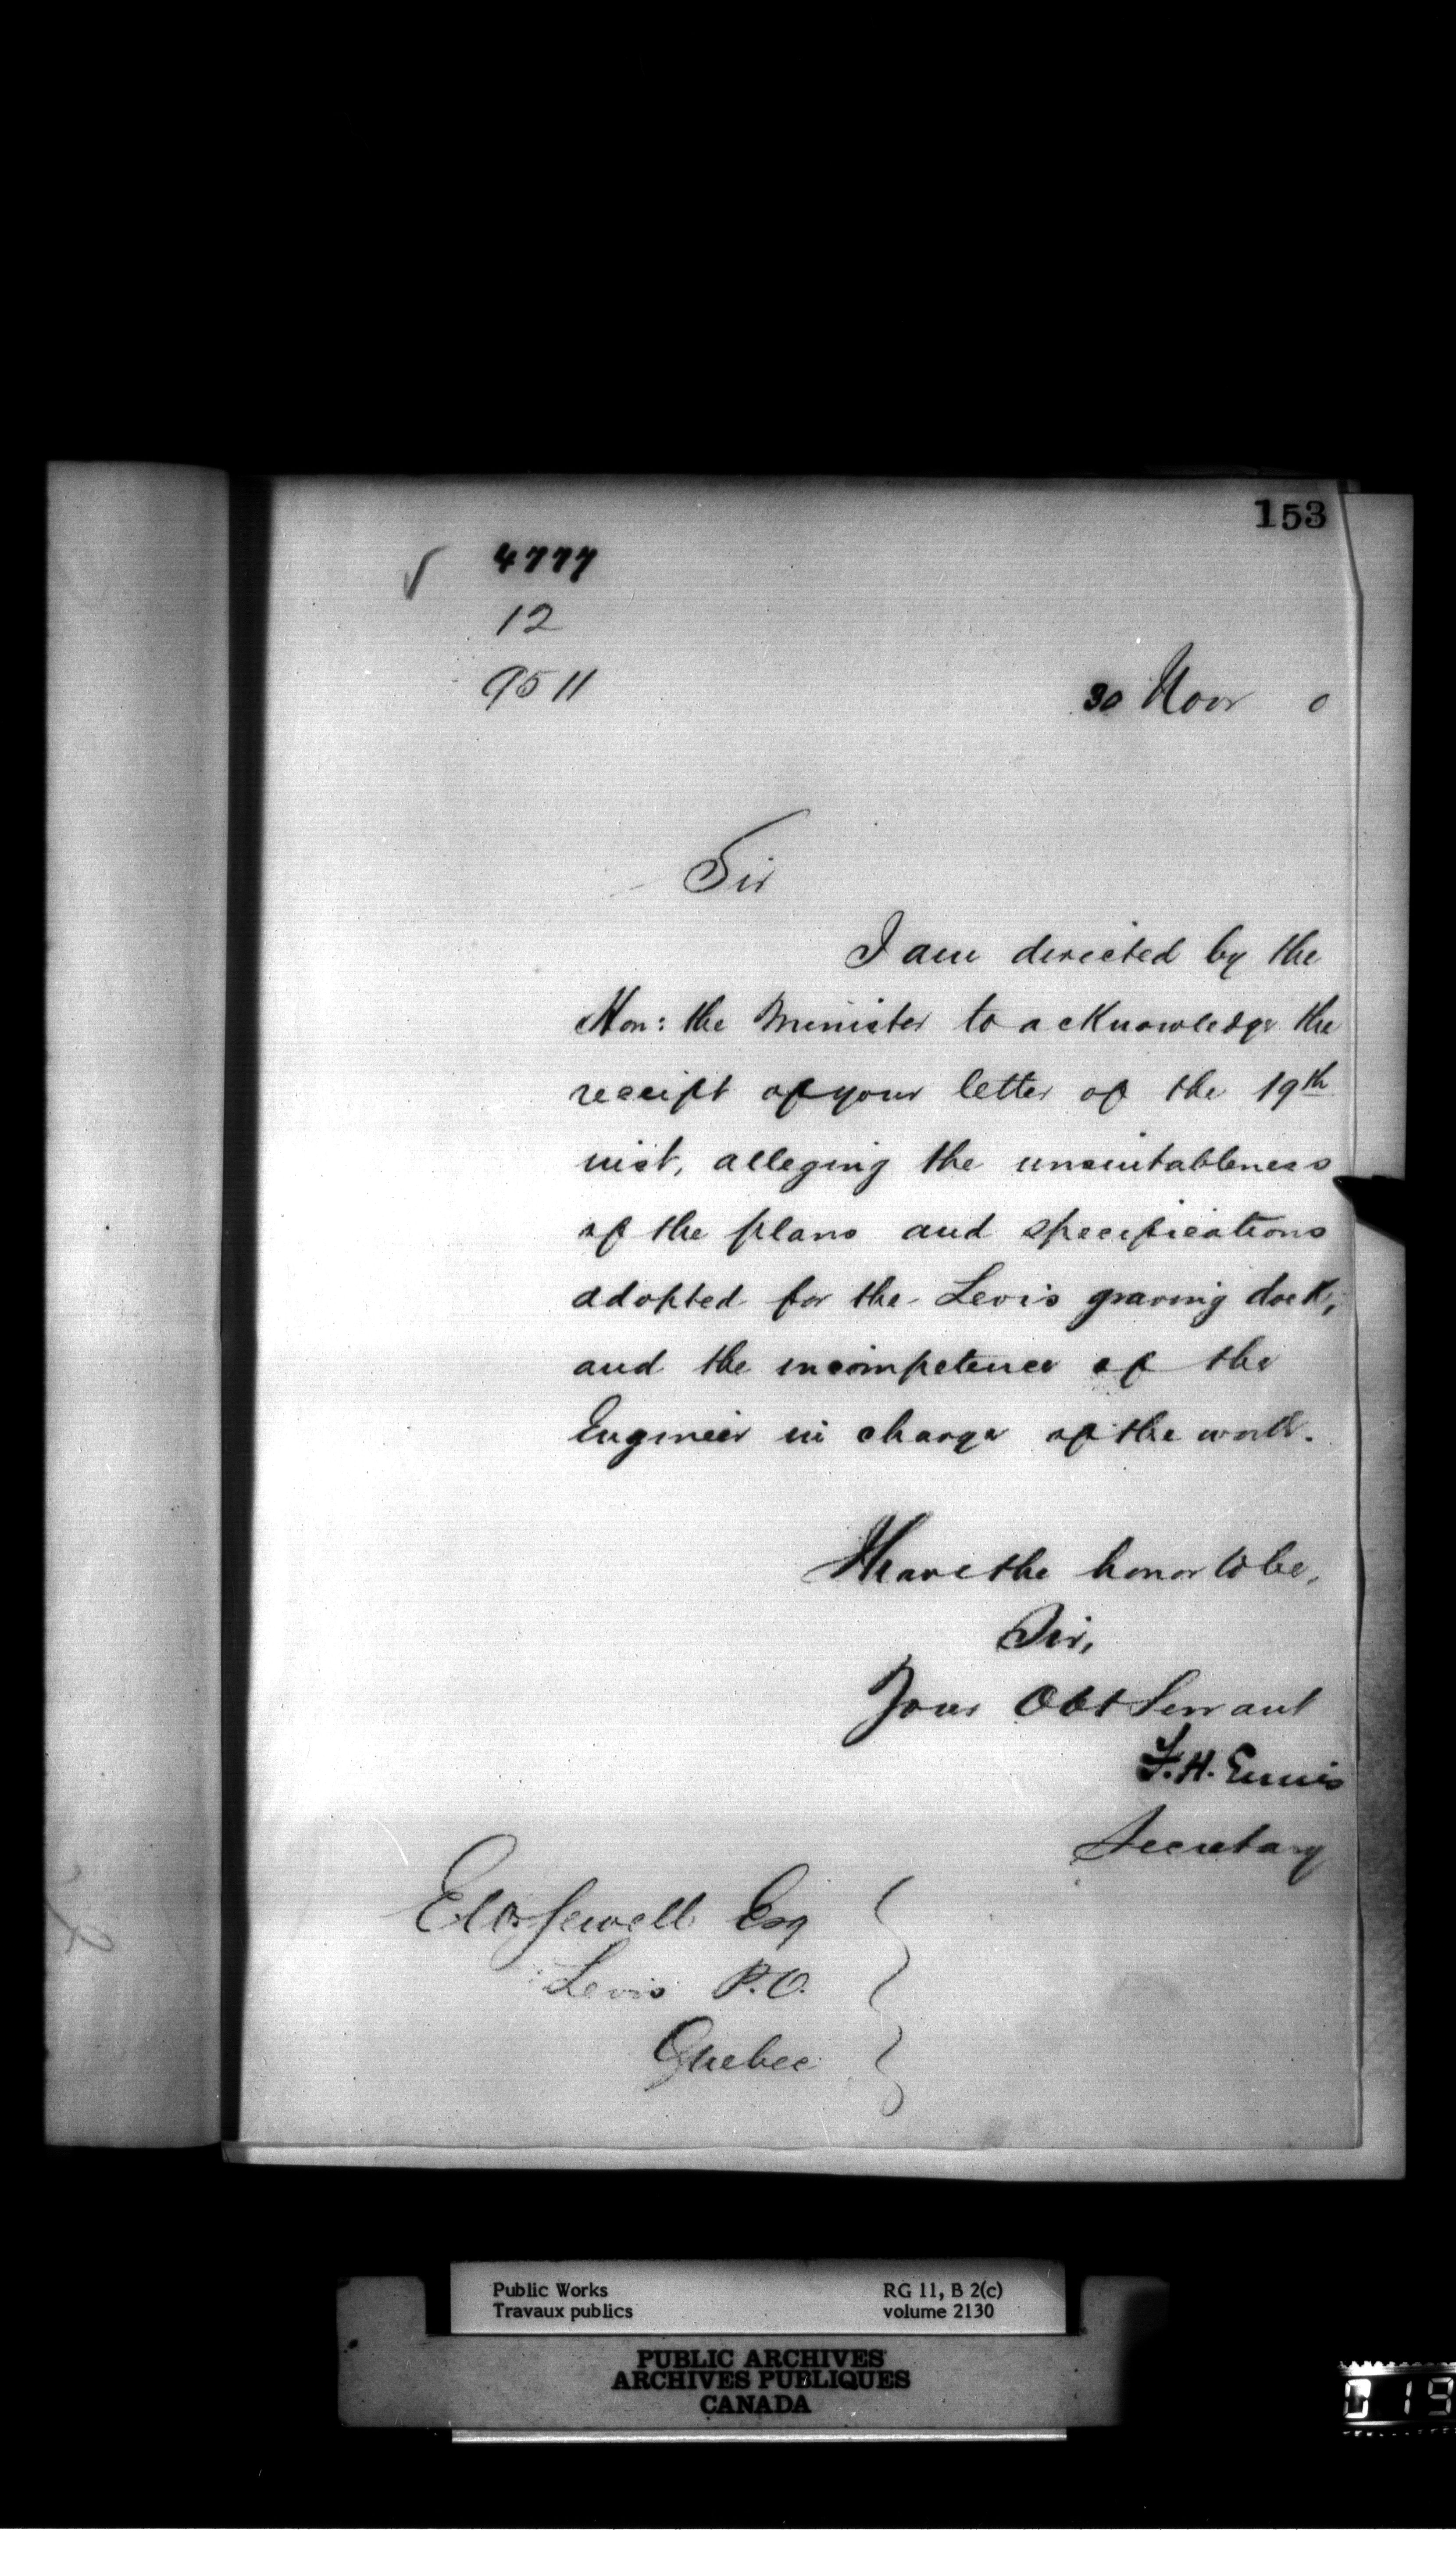 153
4777
12
9511
30 Novr 0
Sir
I am directed by the
Hon: the Minister to acknowledge the
receipt of your letter of the 19th
inst, alleging the unsuitableness
of the plans and specifications
adopted for the Levis graving dock,
and the incompetence of the
Engineer in charge of the work.
I have the honor to be,
Sir,
Your Obt Servant
F. H. Ennis
Secretary
Sewell Esq
Levis P.O.
Quebec
Public Works
Travaux publics
RG 11, B 2(c)
volume 2130
PUBLIC ARCHIVES
ARCHIVES PUBLIQUES
CANADA